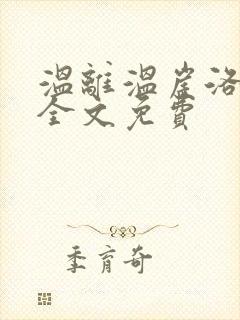 溫離溫崖洛
全文免費
季育奇